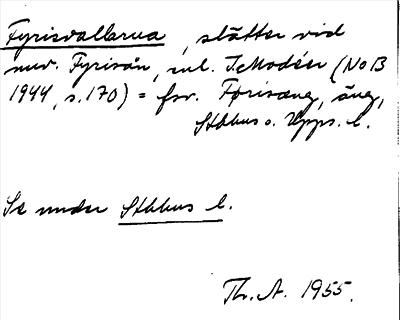 Fyrisvallarna, slätter vid
nuv. Fyrisån, enl. I. Modéer (NoB
1944, s. 170) = fsv. Førisæng, äng,
Sthlms o. Upps. l.
Se under Sthlms l.
Th. A. 1955.